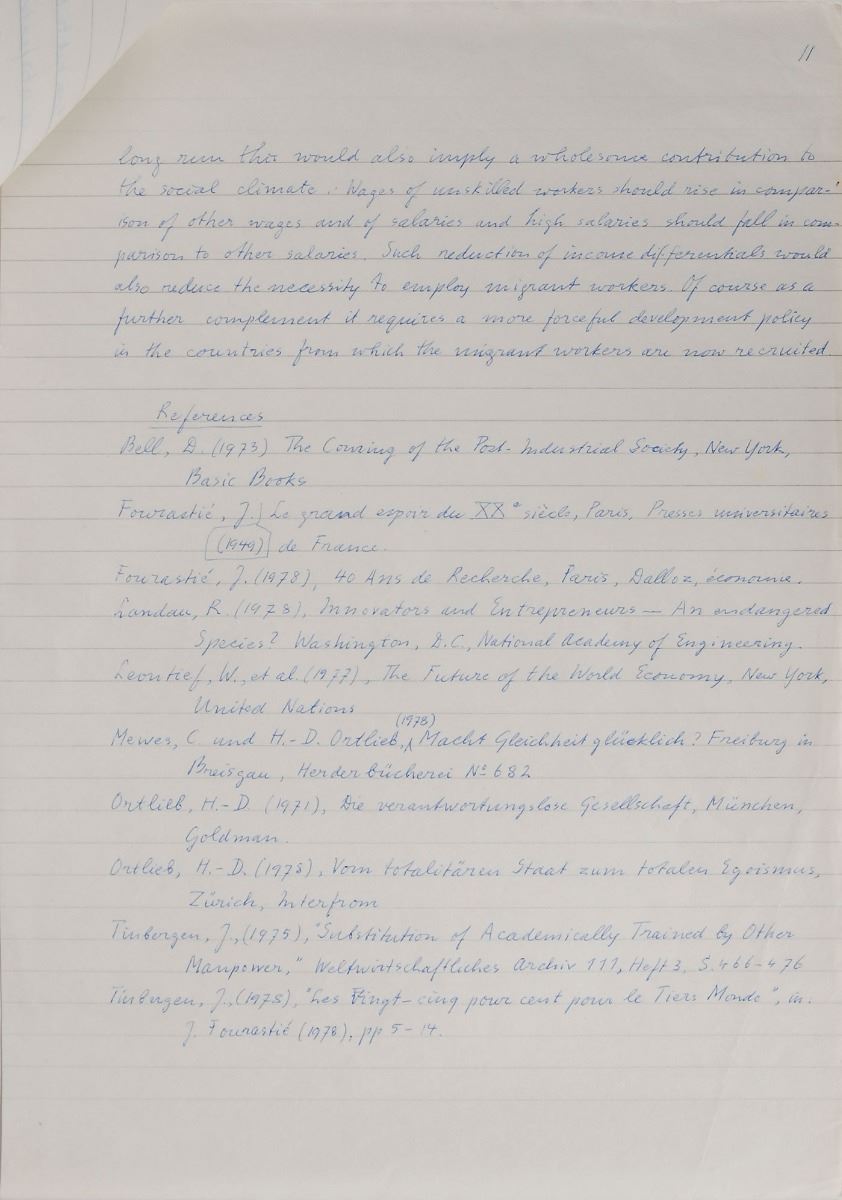 11
long run this would also imply a wholesome contribution to
the social climate: Wages of unskilled workers should rise in compar-
ison of other wages and of salaries and high salaries should fall in com-
parison to other salaries. Such reduction of income differentials would
also reduce the necessity to employ migrant workers. Of course as a
further complement it requires a more forceful development policy
in the countries from which the migrant workers are now recruited.
References
Bell, D. (1973) The Coming of the Post-Industrial Society, New York,
Basic Books
Fourastié, J. Le grand espoir du XXe siècle, Paris, Presses universitaires
(1949) de France.
Fourastié, J. (1978), 40 Ans de Recherche, Paris, Dalloz, économie.
Landau, R. (1978), Innovators and Entrepreneurs — An endangered
Species? Washington, D.C., National Academy of Engineering.
Leontief, W., et al. (1977), The Future of the World Economy, New York,
United Nations
(1978)
Mewes, C. und H.-D. Ortlieb, Macht Gleichheit glücklich? Freiburg in
Breisgau, Herderbücherei No 682
Ortlieb, H.-D. (1971), Die verantwortungslose Gesellschaft, München,
Goldman.
Ortlieb, H.-D. (1978), Vom totalitären Staat zum totalen Egoismus,
Zürich, Interfrom
Tinbergen, J., (1975), "Substitution of Academically Trained by Other
Manpower," Weltwirtschaftliches Archiv 111, Heft 3, S. 466-476
Tinbergen, J., (1978), "Les Vingt-cinq pour cent pour le Tiers Monde", in:
J. Fourastié (1978), pp 5-14.